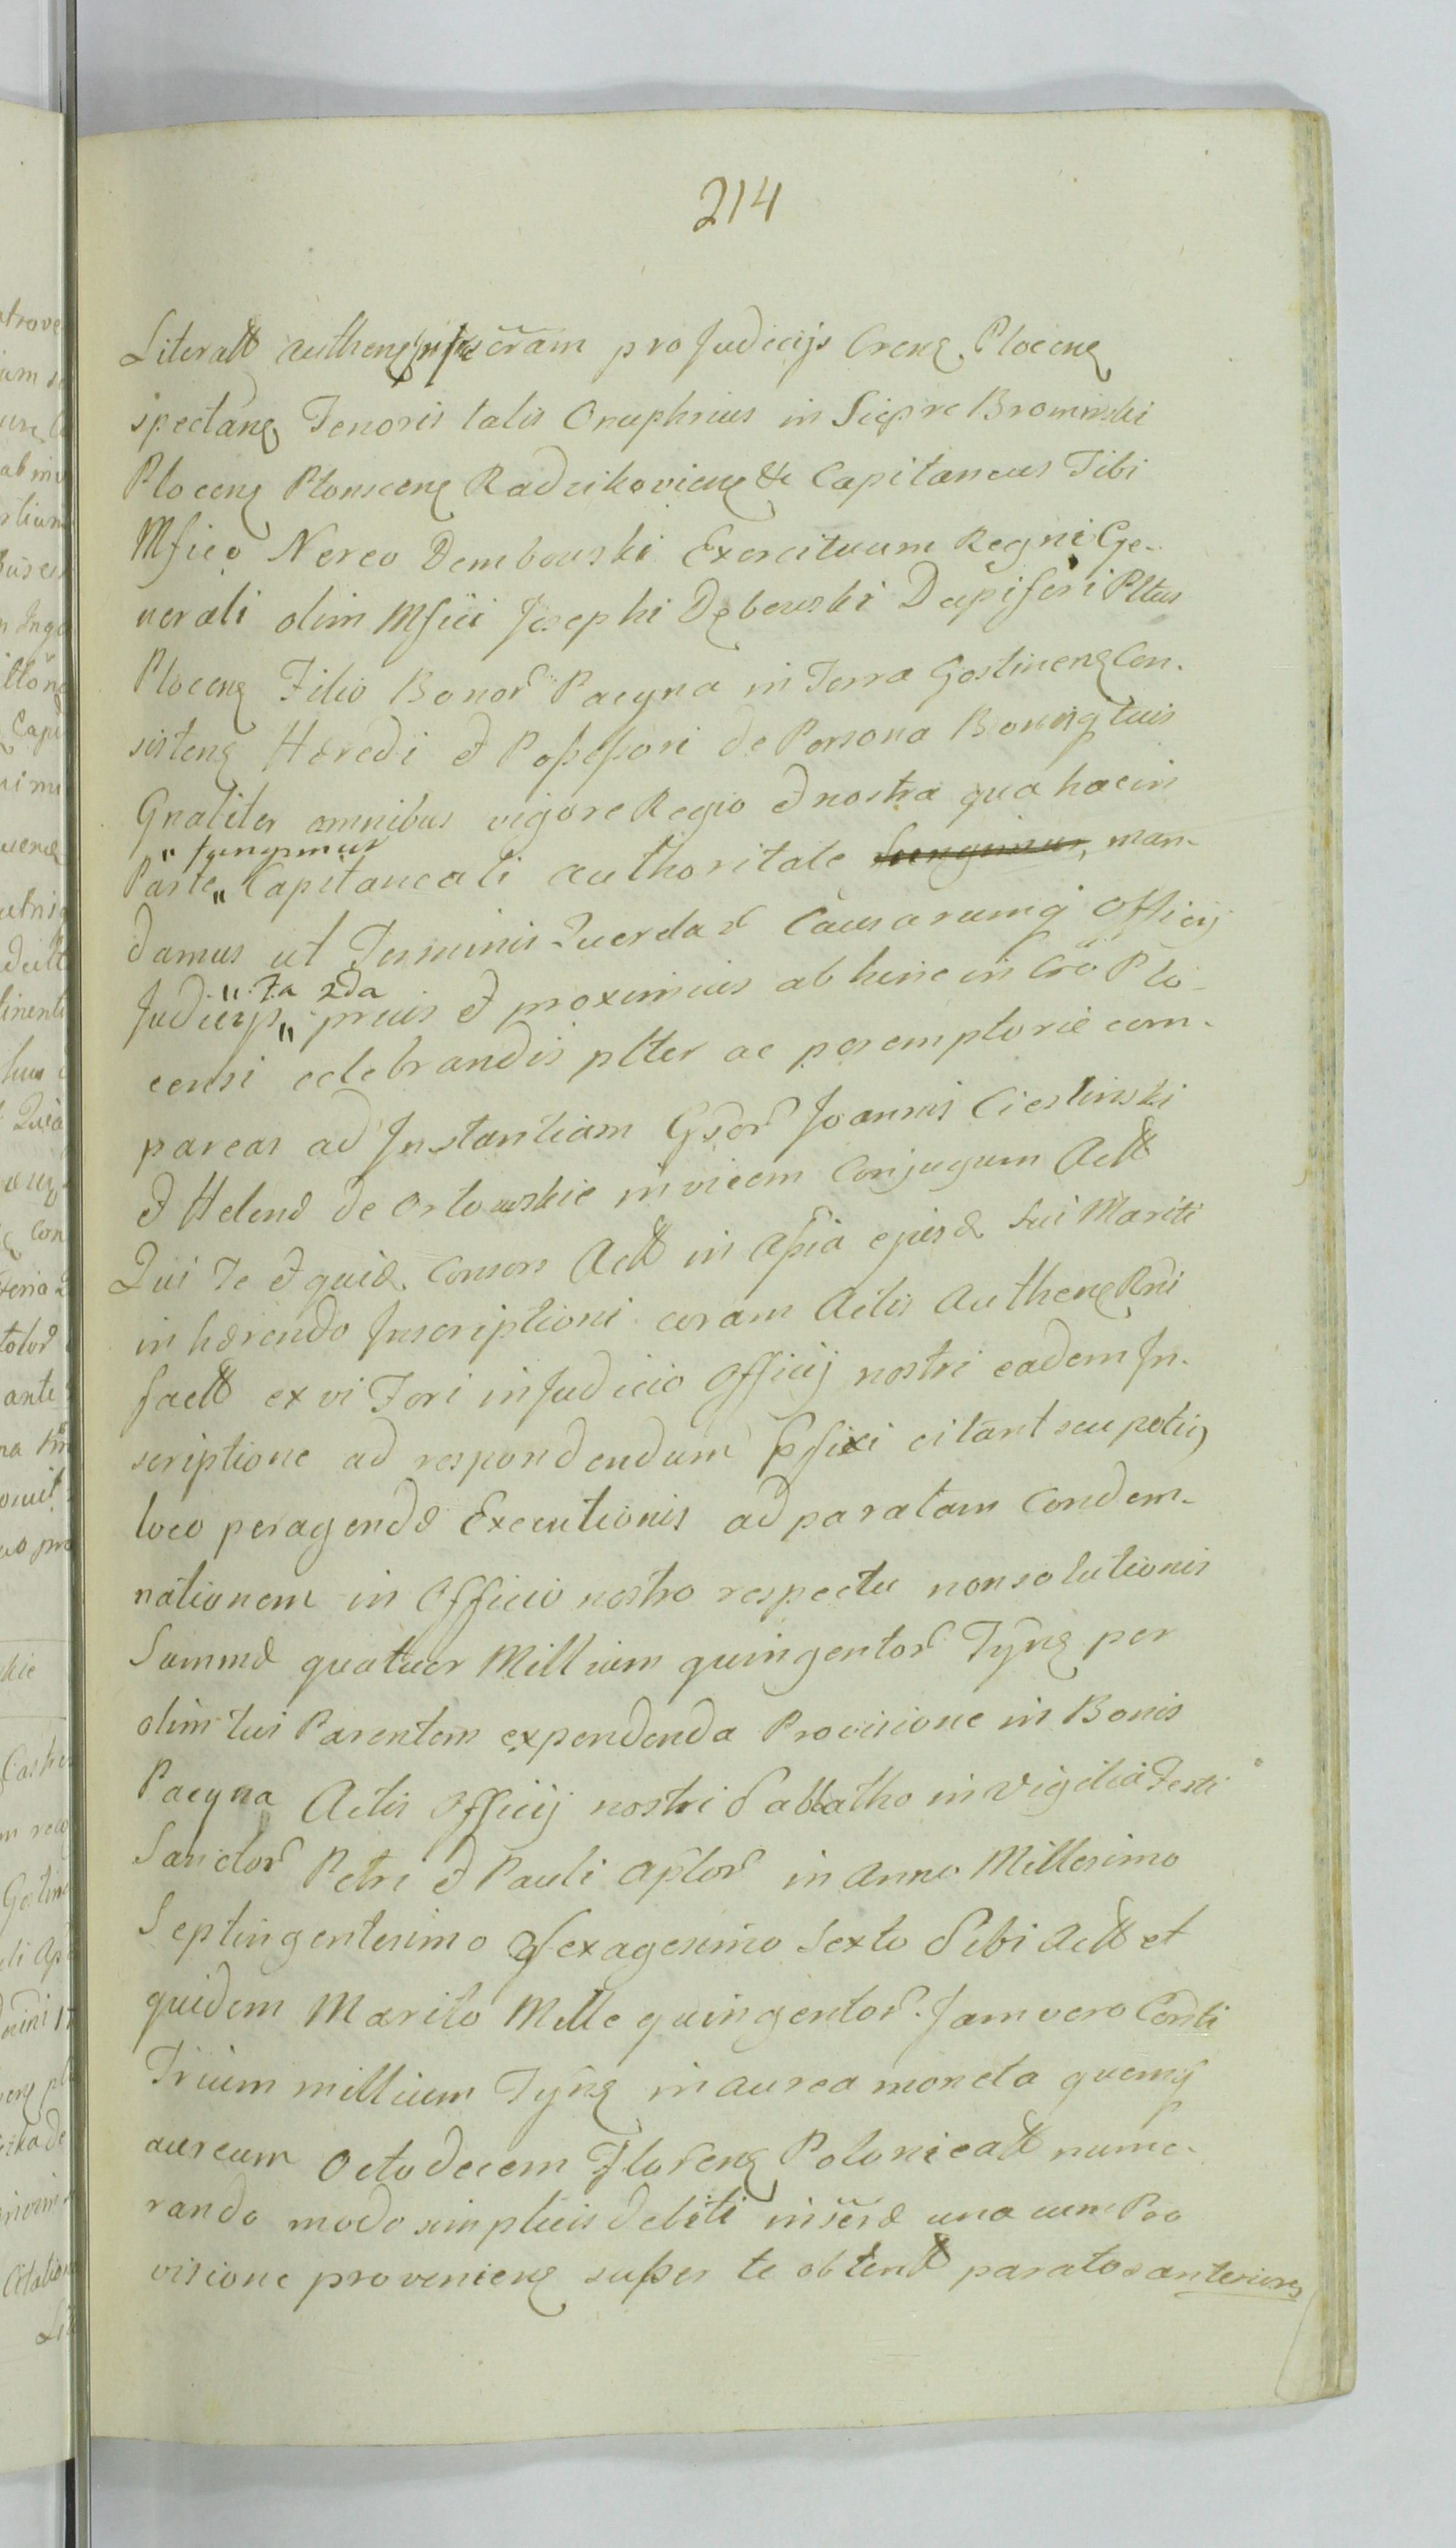 214
Literatt authenq scram pro Judicijs Crenq Plocenq
spectanq Tenoris talis Onuphrius in Siepre Brominski
Plocenq Plonscenq Radzikovienq & Capitaneus Tibi
Mfico Nereo Dembowski Exercituum Regni Ge-
nerali olim Mfici Josephi Dębowski Dapiferi Pltus
Plocenq Filio Bonor Pacyna in Terra Gostinenq Con-
sistenq Hæredi et Possessori de Persona Bonisq tuis
Gnaliter omnibus vigore Regio et nostra qua hac in
" fungimur
Parte " Capitaneali authoritate fungimur, man-
damus ut Terminis Querelar Causarumq Officij
" Fa 2da
Judicijs " prius et proximius ab hinc in Cro Plo-
censi celebrandis plter ac peremptorie com-
pareas ad Instantiam Gsor Joannis Cieslinski
et Helenæ de Orłowskie invicem Conjugum Actt
Qui Te et quid. Consors Actt in assia ejusd. sui Mariti
inhærendo Inscriptioni coram Actis Authenq Rni
factt ex vi Fori in Judicio Officij nostri eadem In-
scriptione ad respondendum citant seu potius
loco peragendæ Executionis ad paratam Condem-
nationem in Officio nostro respectu non solutionis
Summæ quatuor Millium quingentor Tynq per
olim tui Parentem expendenda Provisione in Bonis
Pacyna Actis Officij nostri Sabbatho in Vigilia Festi
Sanctor Petri et Pauli Aplor in Anno Millesimo
Septingentesimo Sexagesimo Sexto Sibi Actt et
quidem Marito Mille quingentor. Jam vero Conti
Trium millium Tynq in aurea moneta quemq
aureum Octodecem Florenq Polonicatt nume-
rando modo simplicis debiti inscræ una cum Pro
visione provenienq super te obtentt paratos anteriores